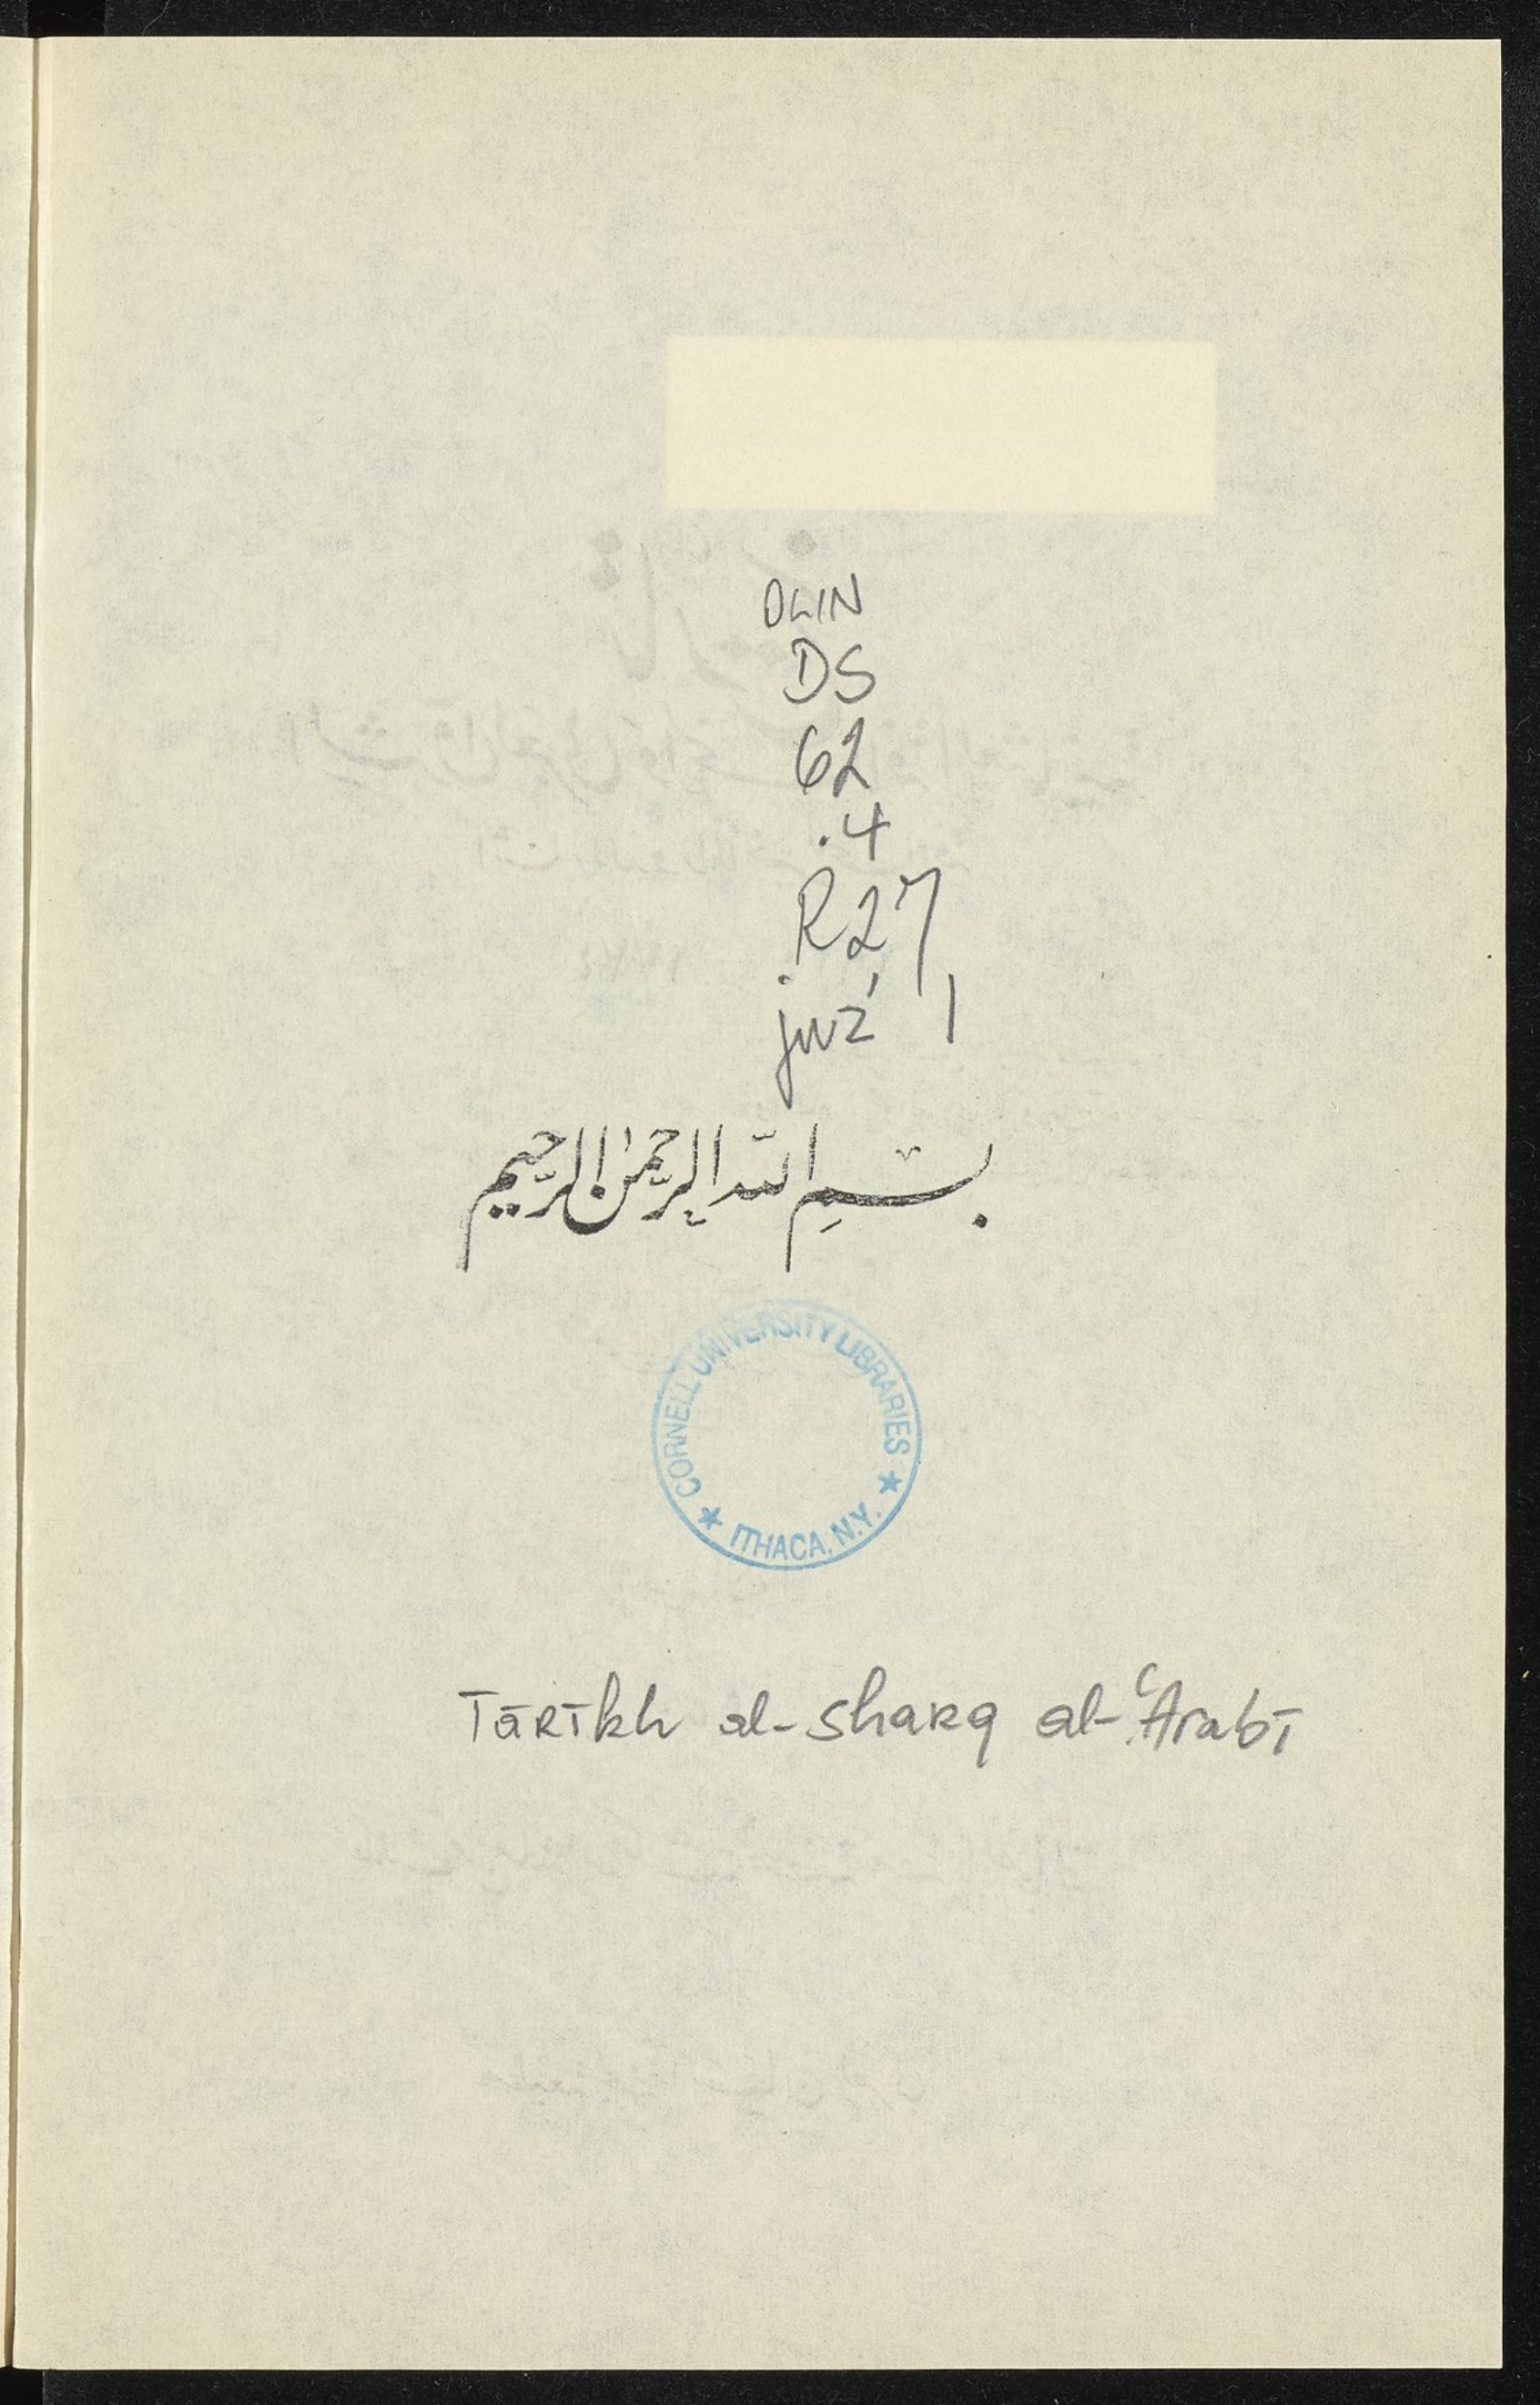 OLIN
DS
62
.4
.R27
juz' 1
بِسْمِ اللّٰهِ الرَّحْمٰنِ الرَّحِيم
CORNELL UNIVERSITY LIBRARIES
★ ITHACA, N.Y. ★
Tārīkh al-sharq al-ʿArabī